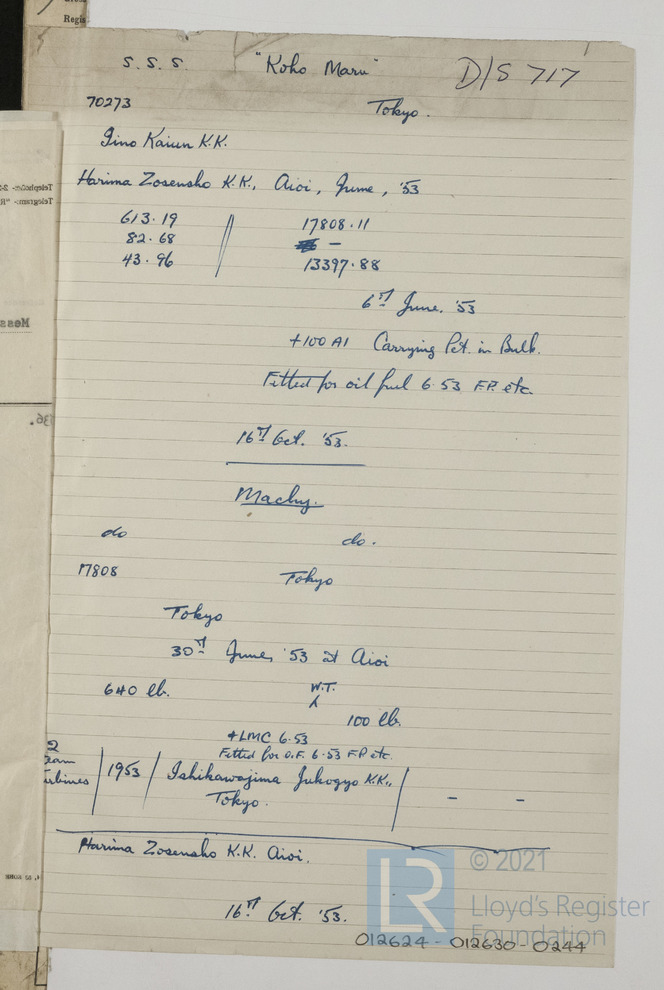 Regis
S.S.S. "Koho Maru" D/S 717
70273 Tokyo.
Iino Kaiun K.K.
Harima Zosensho K.K., Aioi, June, '53
613.19 17808.11
82.68 —
43.96 13397.88
6th June, '53
+100 A1 Carrying Pet. in Bulk.
Fitted for oil fuel 6.53 F.P. etc.
16th Oct. '53.
Machy.
do do.
17808 Tokyo
Tokyo
30th June, '53 at Aioi
640 lb. W.T.
100 lb.
+LMC 6.53
Fitted for O.F. 6.53 F.P. etc.
2
eam
urbines 1953 Ishikawajima Jukogyo K.K., — —
Tokyo.
Harima Zosensho K.K. Aioi.
16th Oct. '53.
LR © 2021
Lloyd's Register
Foundation
012624-012630-0244